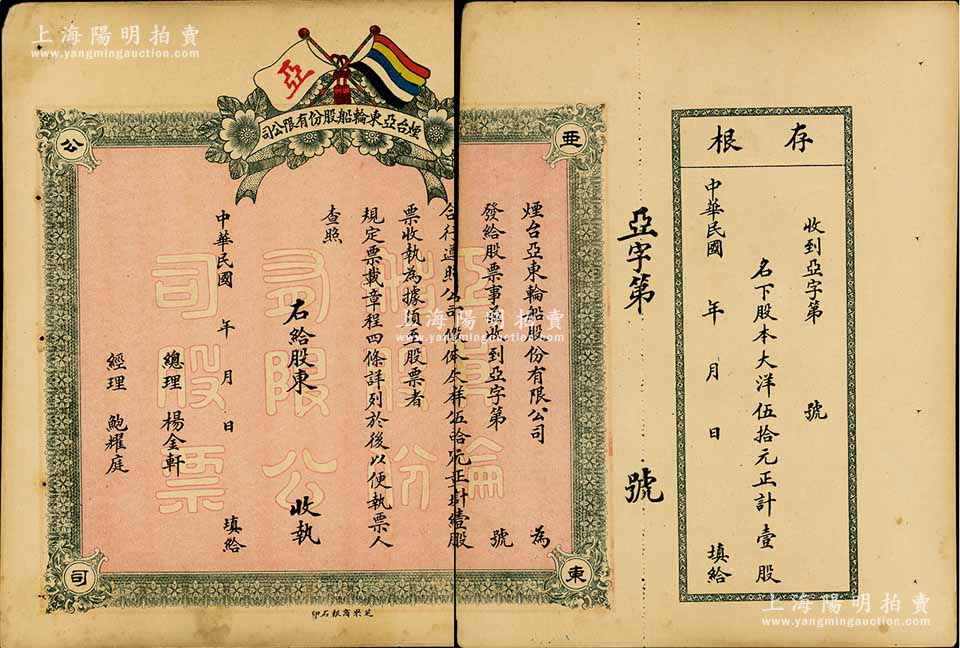 上海陽明拍賣
www.yangmingauction.com
亞
煙台亞東輪船股份有限公司
亜
東
公
司
煙台亞東輪船股份有限公司 為
發給股票事茲收到亞字第 號
票收執為據須至股票者
規定票載章程四條詳列於後以便執票人
查照
右給股東 收執
中華民國 年 月 日 填給
總理 楊金軒
經理 鮑耀庭
亞字第 號
存根
收到亞字第 號
名下股本大洋伍拾元正計壹股
中華民國 年 月 日 填給
上海陽明拍賣
www.yangmingauction.com
上海陽明拍賣
www.yangmingauction.com